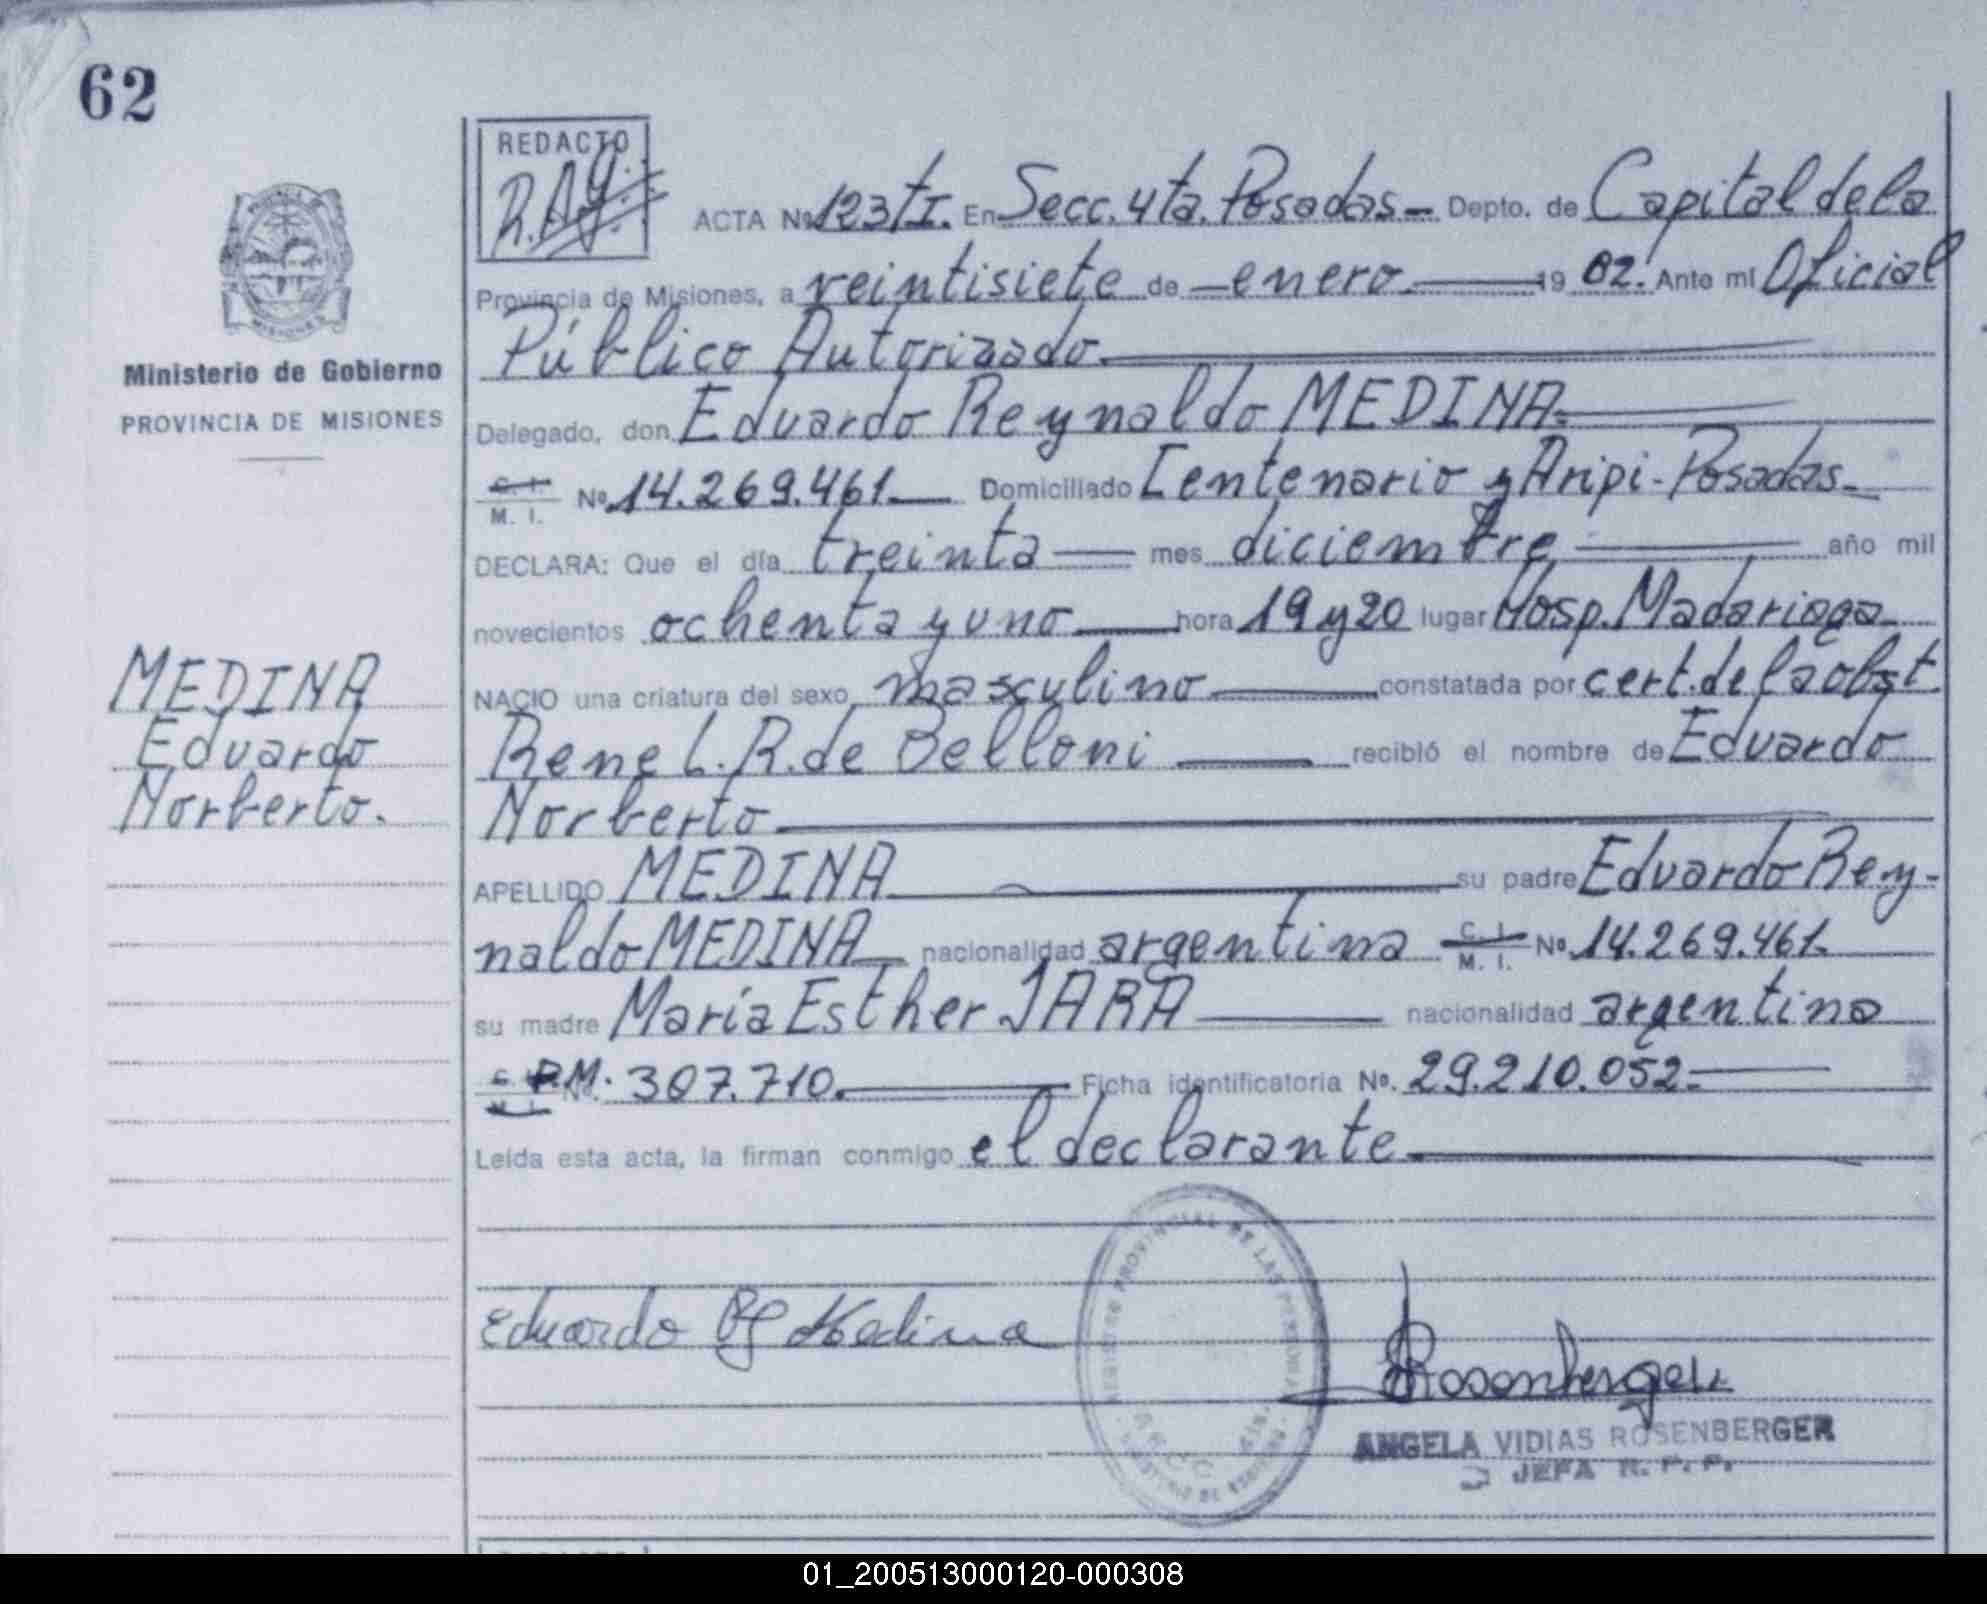 62
REDACTO
R.A.G.
ACTA Nº 123/TI. En Secc. 4ta. Posadas - Depto. de Capital de la
Provincia de Misiones, a veintisiete de - enero. 19 82. Ante mí Oficial
Público Autorizado.
Delegado, don Eduardo Reynaldo MEDINA.
C. I. M. I. Nº 14.269.461. Domiciliado Centenario y Aripi - Posadas.
DECLARA: Que el día treinta mes diciembre año mil
novecientos ochenta y uno hora 19 y 20 lugar Hosp. Madariaga
NACIO una criatura del sexo masculino constatada por cert. de la obst.
Rene L. R. de Belloni recibió el nombre de Eduardo
Norberto
APELLIDO MEDINA su padre Eduardo Rey-
naldo MEDINA nacionalidad argentina C. I. M. I. Nº 14.269.461.
su madre María Esther JARA nacionalidad argentina
P.M. No. 307.710. Ficha identificatoria Nº. 29.210.052.
Leída esta acta, la firman conmigo el declarante
Ministerio de Gobierno
PROVINCIA DE MISIONES
MISIONES
MEDINA
Eduardo
Norberto.
Eduardo Medina
PROVINCIAL DE LAS PERSONAS
Rosenberger
ANGELA VIDIAS ROSENBERGER
JEFA R. P. P.
01_200513000120-000308